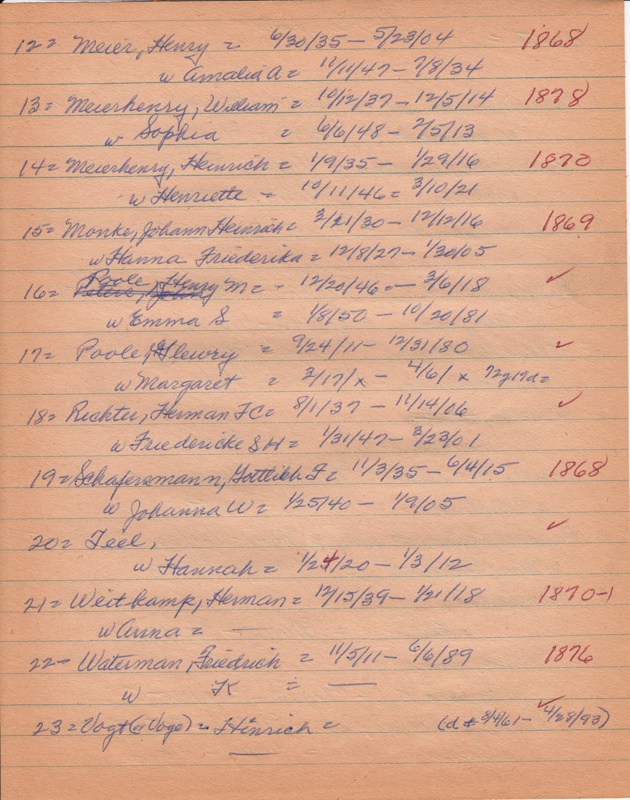 12= Meier, Henry = 6/30/35 — 5/23/04 1868
w Amalia A = 11/11/47 — 7/8/34
13= Meierhenry, William = 10/12/37 — 12/5/14 1878
w Sophia = 6/6/48 — 2/5/13
14= Meierhenry, Heinrich = 1/9/35 — 1/29/16 1870
w Henriette = 10/11/46 = 3/10/21
15= Monke, Johann Heinrich = 2/21/30 — 12/12/16 1869
w Hanna Friederika = 12/8/27 — 1/30/05
16= Poole, Henry M = - 12/20/46 = — 3/6/18 ✓
w Emma S = 1/8/50 — 10/20/81
17= Poole, Flewry = 9/24/11 — 12/31/80 ✓
w Margaret = 2/17/x — 4/6/x 72y19d =
18= Richter, Herman FC = 8/1/37 — 11/14/06 ✓
w Friedericke S H = 1/31/47 — 3/23/01
19= Schafersmann, Gottlieb F = 11/3/35 — 6/4/15 1868
w Johanna W = 1/25/40 — 1/9/05
20= Teel, ✓
w Hannah = 1/24/20 — 1/3/12
21= Weitkamp, Herman = 12/15/39 — 1/21/18 1870-1
w Anna = —
22— Waterman, Friedrich = 11/5/11 — 6/6/89 1876
w K = —
23= Vogt (or Voge) = Hinrich = (d 8/4/61 — 4/28/93) ✓
—